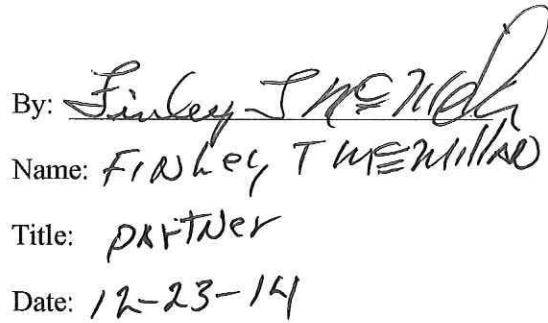 By: Finley T McMillan
Name: Finley T McMillan
Title: partner
Date: 12-23-14